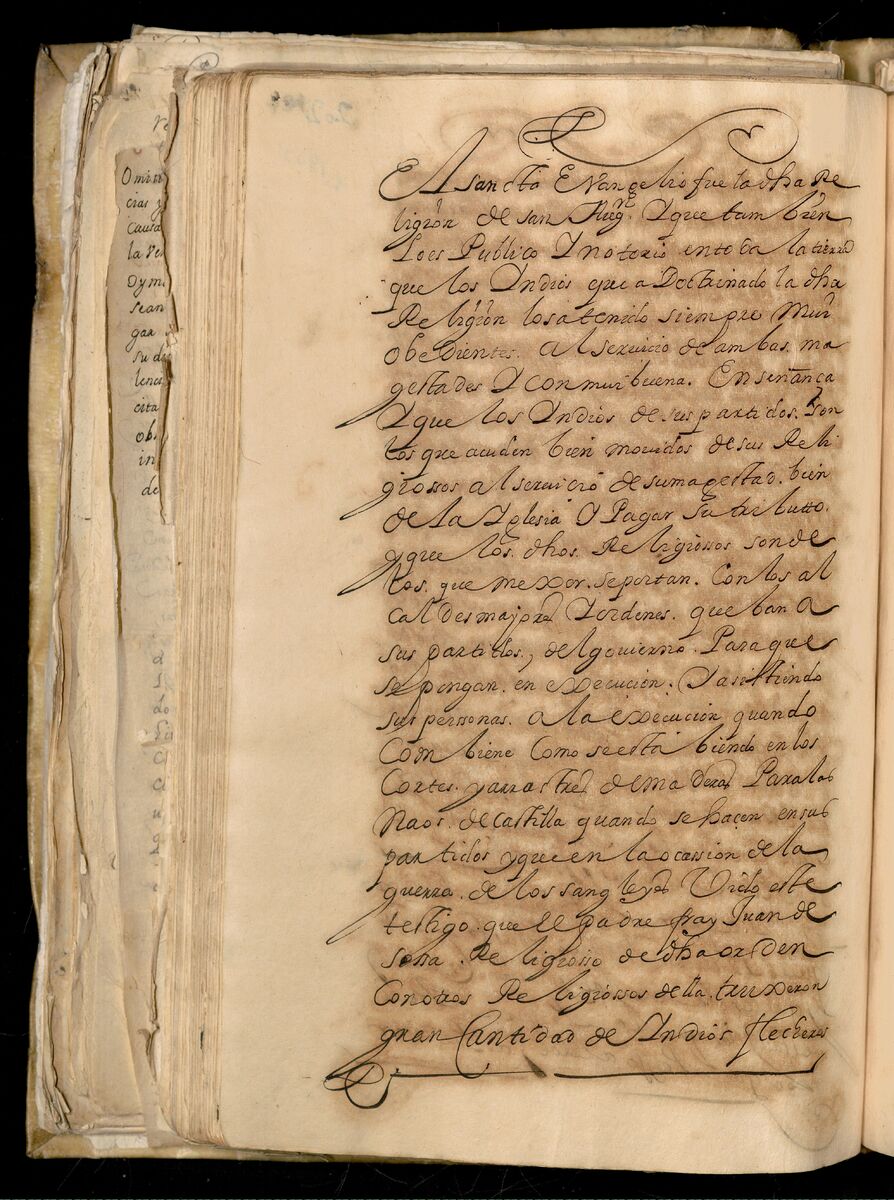 El Sancto Evangelio fue la dha Re
ligion de san Aug.n Y que tambien
Loes Publico Y notorio entoda latierra
que los Yndios que a Doctrinado la dha
Religion losatenido siempre Mui
obedientes. al seruicio de ambas. ma
gestades Y conmuibuena. Enseñança
Y que los Yndios de sus partidos. son
los que acuden bien movidos desus Reli
giossos al seruicio desumagestad. bien
de la Yglesia Y Pagar su tributto.
yque los. dhos. Religiossos sonde
los. que mexor. seportan. Con los al
caldesmajores Y ordenes. que ban a
sus partidos, del gouierno. Paraque
se pongan. en execucion. Y asistiendo
sus perssonas. a la execucion quando
Combiene Como seesta biendo en los
Cortes. yarrastres de maderas Para las
Naos. de castilla quando se hacen ensus
partidos yque en la ocassion de la
guerra. de los sangleyes Vido este
testigo. que el padre fray Juan de
sossa. Religiosso de dha orden
Conotros Religiossos de lla. truxeron
gran Cantidad de Yndios flecheros
Omini
cias y
causa
la Ve
Oymi
sean
gar
su di
lenci
cita
ob
in
de